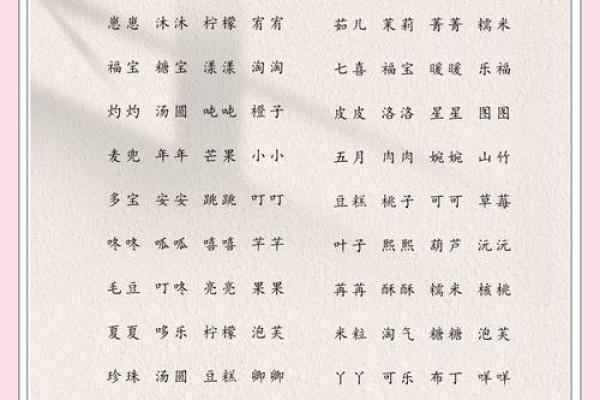 崽崽 沐沐 柠檬 宥宥
福宝 糖宝 漾漾 淘淘
灼灼 汤圆 吨吨 橙子
麦兜 年年 芒果 小小
多宝 安安 跳跳 叮叮
咚咚 呱呱 嘻嘻 芊芊
毛豆 叮咚 亮亮 果果
夏夏 哆乐 柠檬 泡芙
珍珠 汤圆 豆糕 卿卿
茹儿 茉莉 菁菁 糯米
七喜 福宝 暖暖 乐福
皮皮 洛洛 星星 图图
五月 肉肉 婉婉 山竹
豆糕 桃子 可可 草莓
叶子 熙熙 葫芦 沅沅
苒苒 酥酥 糯米 核桃
米粒 淘气 糖糖 泡芙
丫丫 可乐 布丁 咩咩